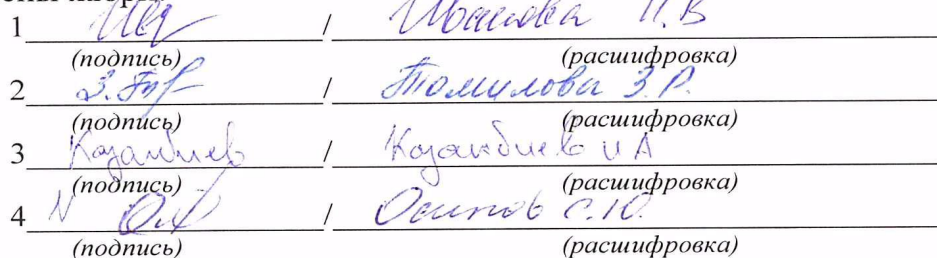 1 / Иванова Н.В
(подпись) (расшифровка)
2 З. / Томилова З.Р.
(подпись) (расшифровка)
3 Казанбиев / Казанбиев И А
(подпись) (расшифровка)
4 / Осипов С.Ю.
(подпись) (расшифровка)